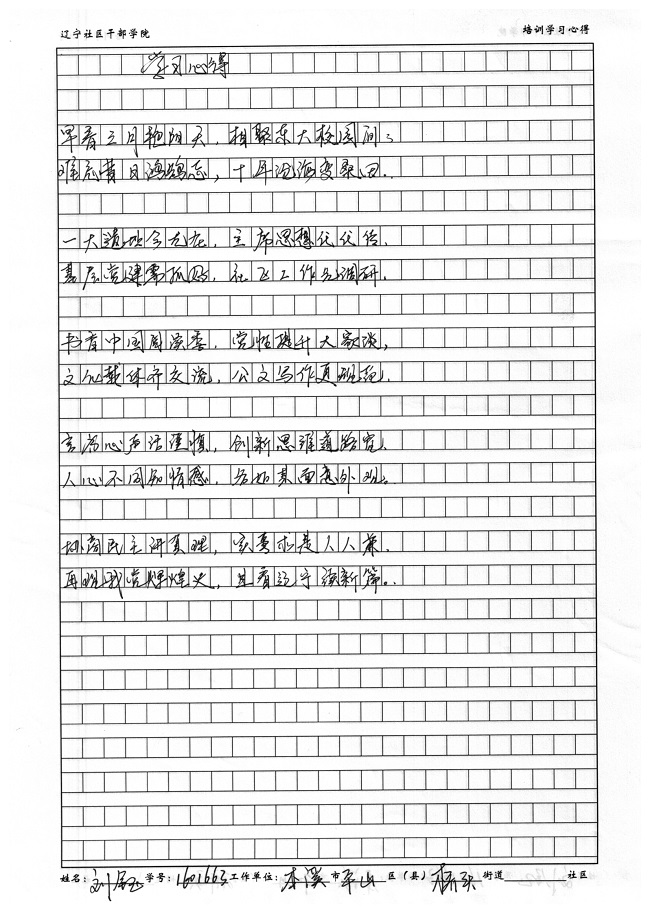 辽宁社区干部学院 培训学习心得
学习心得
早春三月艳阳天,相聚东大校园间;
难忘昔日鸿鹄志,十年沧海变桑田.
一大遗址今尤在,主席思想代代传.
基层党建需抓实,社区工作先调研.
书看中国周演香,党性提升大家谈,
文化载体齐交流,公文写作真规范.
言为心声话谨慎,创新思维道路宽.
人心不同知情感,各如其面意外观。
协商民主讲真理,家事求是人人兼.
再观我党辉煌史,且看辽宁续新篇..
姓名:刘 学号:1601663 工作单位:本溪市平山区(县)桥头街道 社区